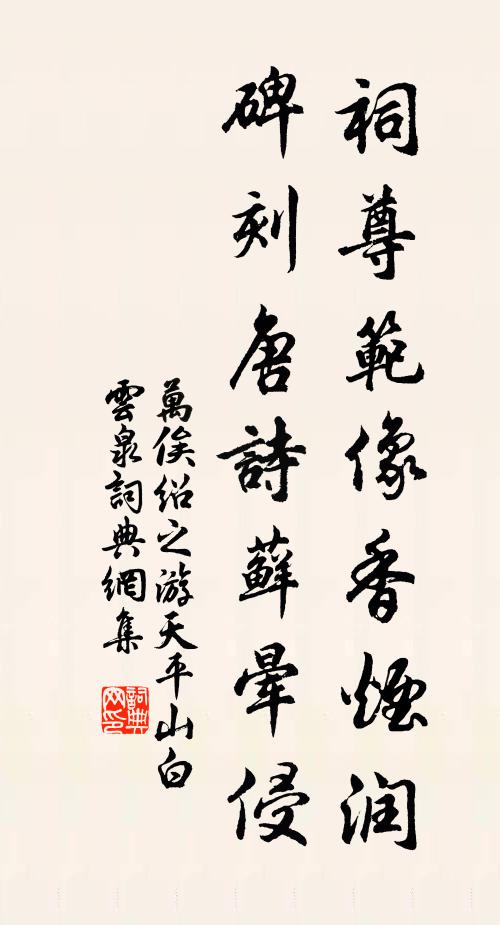 祠尊範像香煙润
碑刻唐詩蘚暈侵
萬俟绍之游天平山白
雲泉詞典網集
詞典
网印